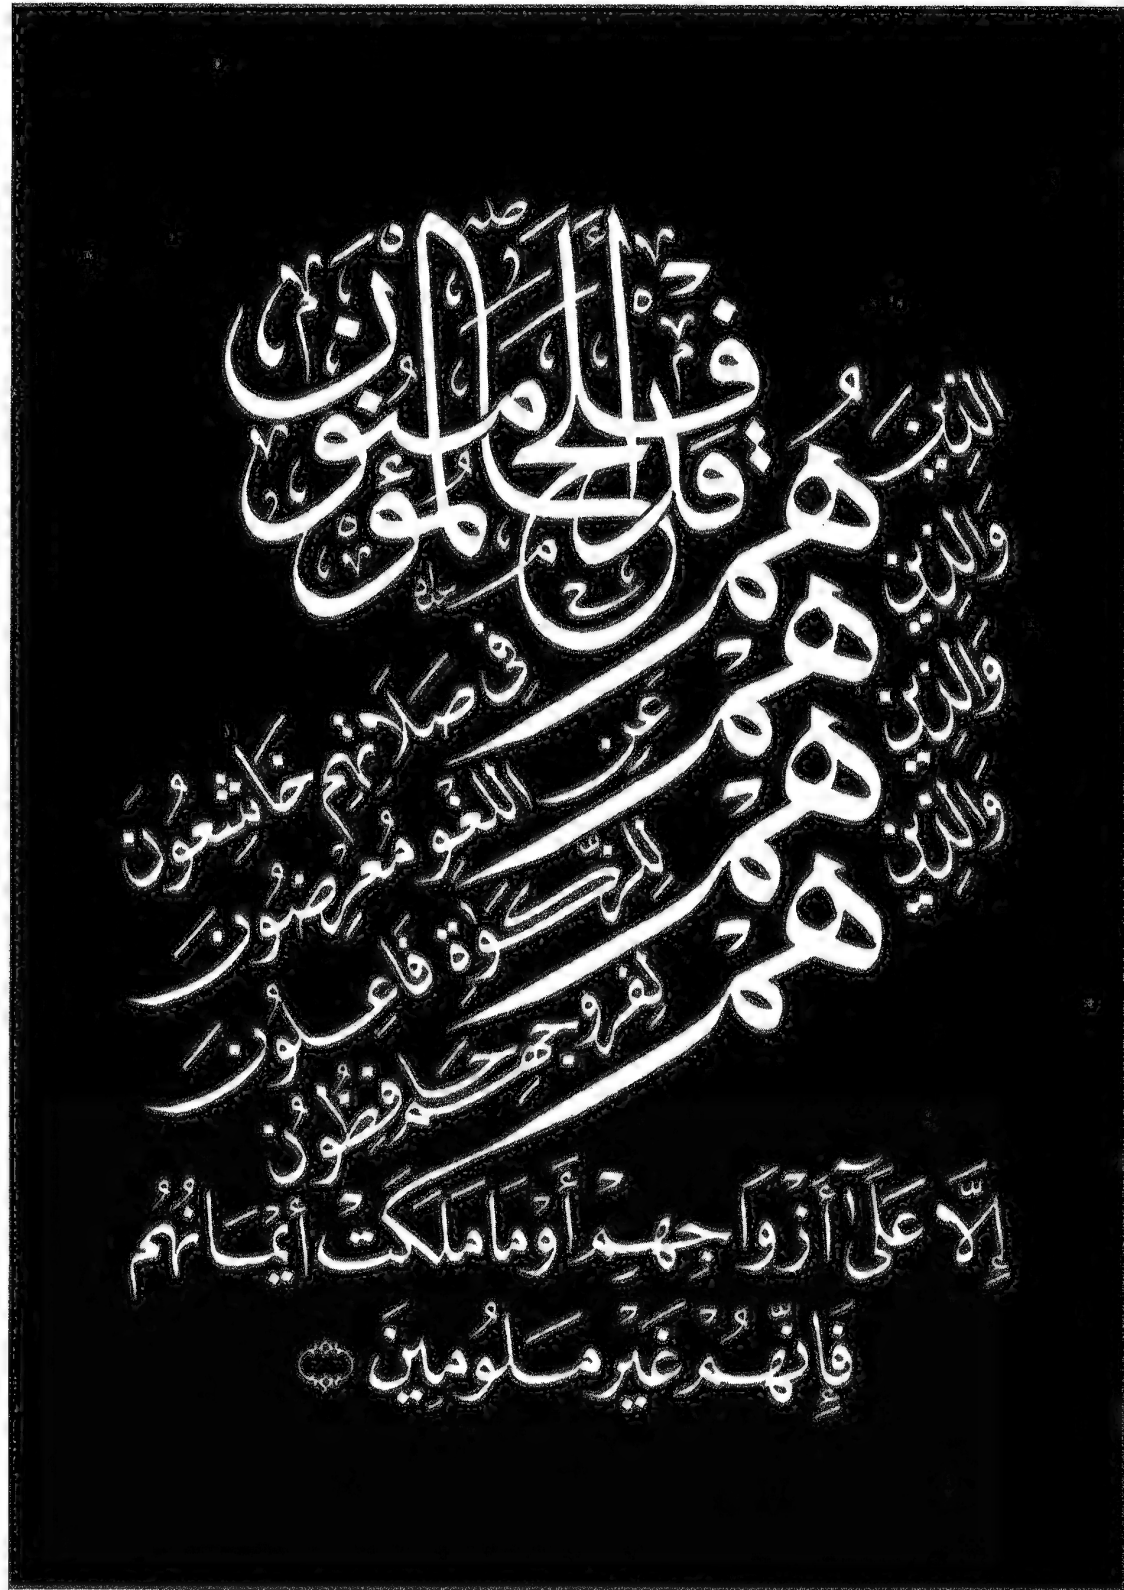 قَدْ أَفْلَحَ الْمُؤْمِنُونَ
الذِينَ هُمْ فِي صَلَاتِهِمْ خَاشِعُونَ
وَالذِينَ هُمْ عَنِ اللغْوِ مُعْرِضُونَ
وَالذِينَ هُمْ لِلزَّكَوٰةِ فَاعِلُونَ
وَالذِينَ هُمْ لِفُرُوجِهِمْ حَافِظُونَ
إِلَّا عَلَىٰٓ أَزْوَاجِهِمْ أَوْ مَا مَلَكَتْ أَيْمَانُهُمْ
فَإِنَّهُمْ غَيْرُ مَلُومِينَ